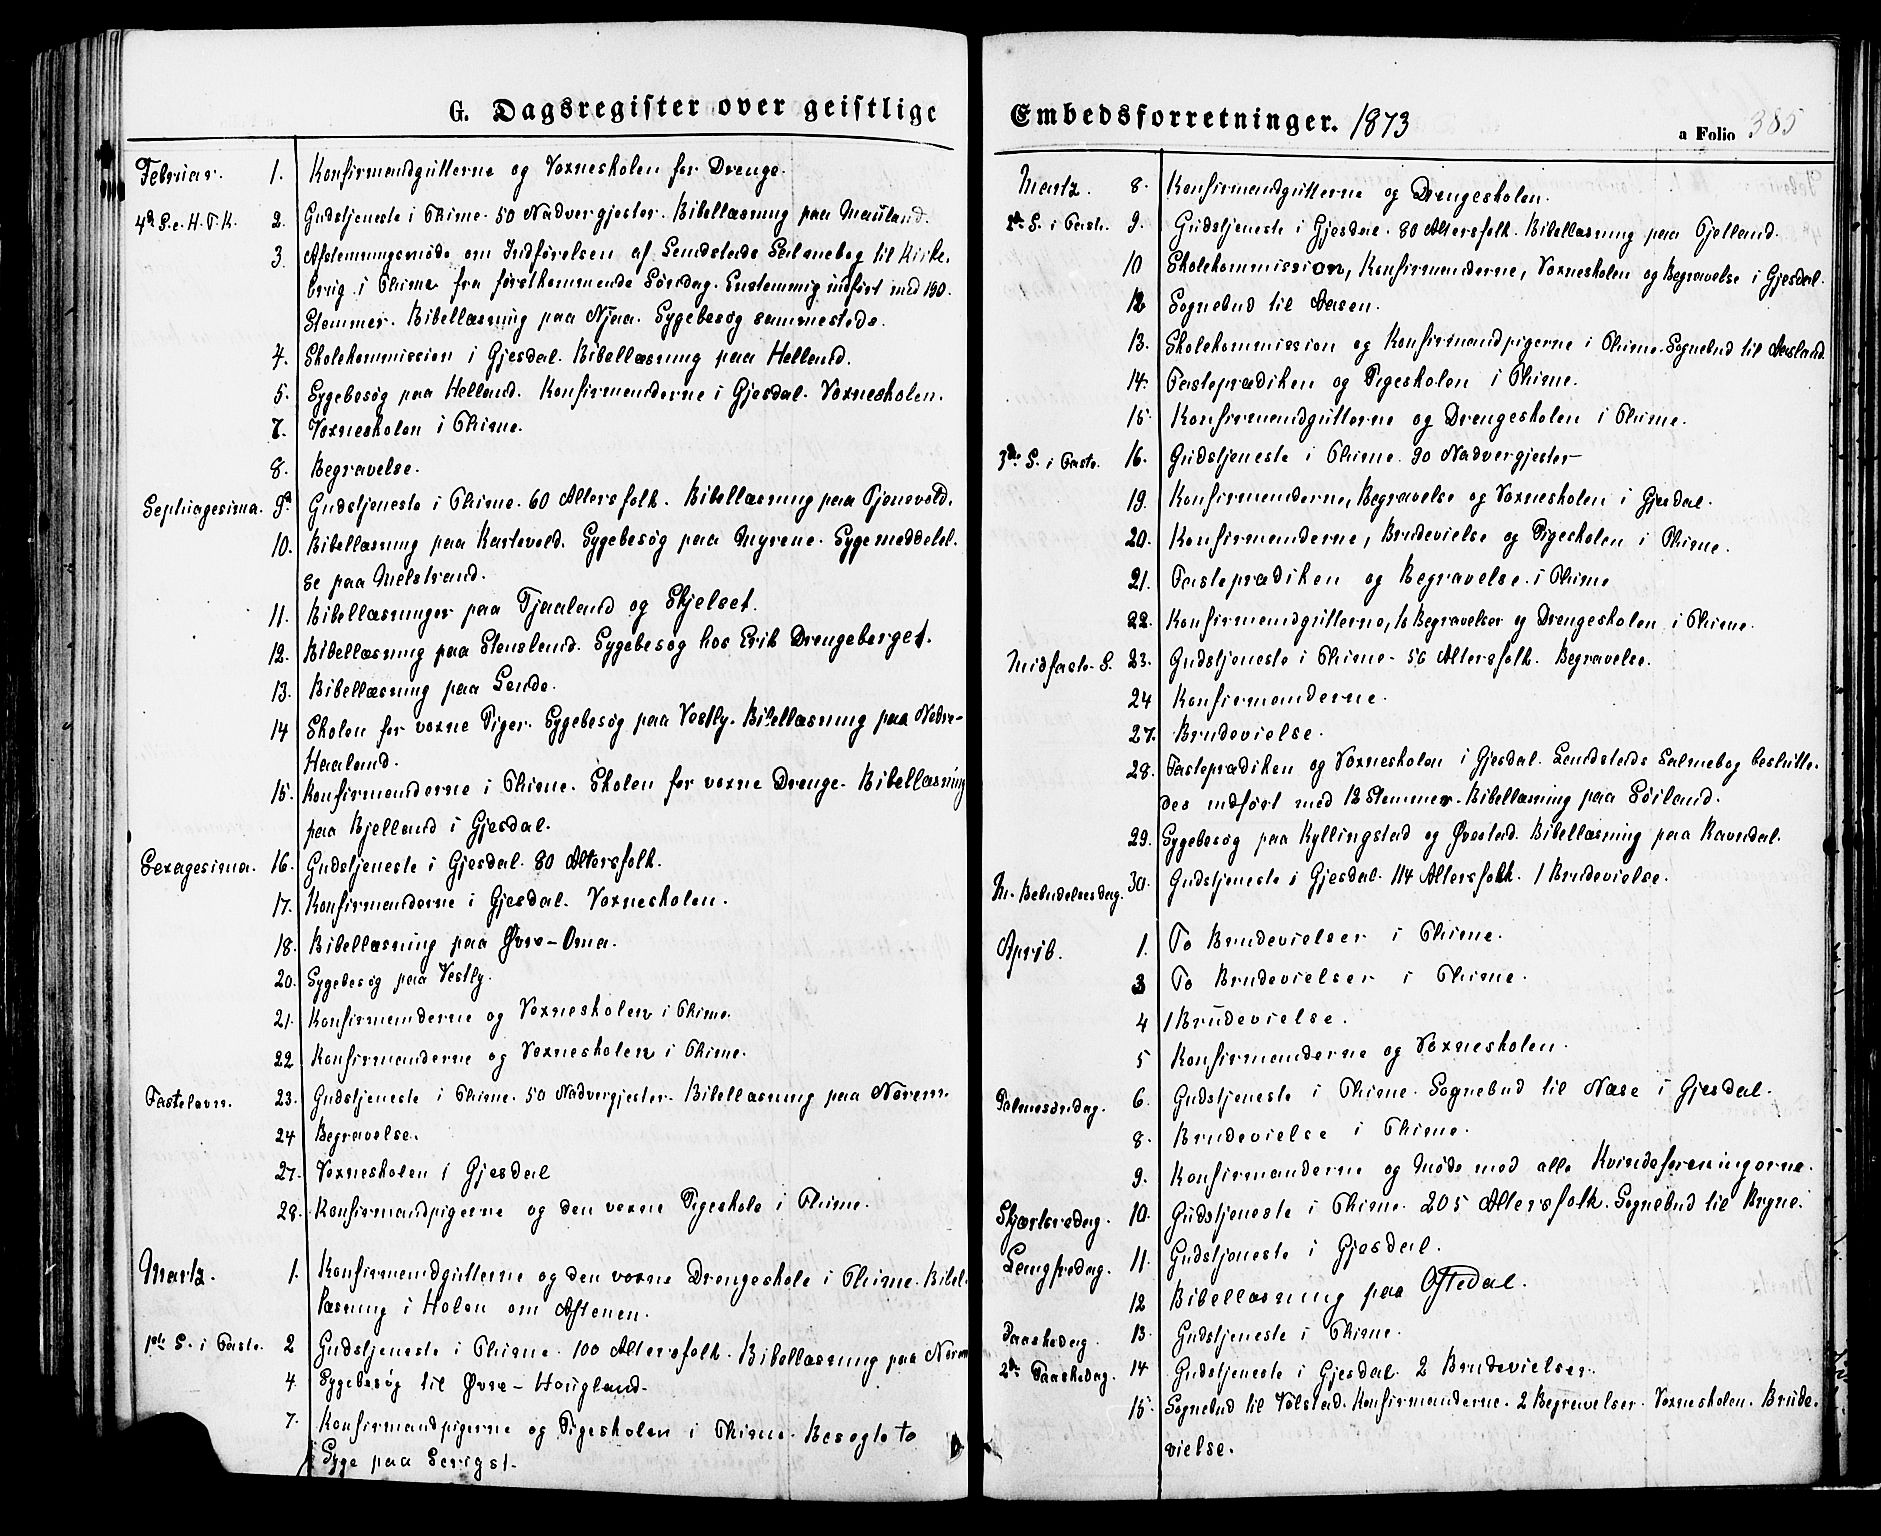 G. Dagsregister over geistlige
Februar. 1. Konfirmandgutterne og Voxneskolen for Drenge.
4d S. e. H. T. K. 2. Gudstjeneste i Thime. 50 Nadvergjester. Bibellæsning paa Mauland.
3. Afstemningsmøde om Indførelsen af Landstads Salmebog til Kirke-
brug i Thime fra førstkommende Søndag. Enstemmig indført med 190.
Stemmer. Bibellæsning paa Njaa. Sygebesøg sammesteds.
4. Skolekommission i Gjesdal. Bibellæsning paa Helland.
5. Sygebesøg paa Helland. Konfirmanderne i Gjesdal. Voxneskolen.
7. Voxneskolen i Thime.
8. Begravelse.
Septuagesima. 9d Gudstjeneste i Thime. 60 Altersfolk. Bibellæsning paa Tjenevold.
10. Bibellæsning paa Kartevold. Sygebesøg paa Myrene. Sygemeddelel-
se paa Melstrand.
11. Bibellæsninger paa Tjaaland og Skjelset.
12. Bibellæsning paa Stensland. Sygebesøg hos Erik Drengeberget.
13. Bibellæsning paa Lende.
14 Skolen for voxne Piger. Sygebesøg paa Vestly. Bibellæsning paa Nedre-
Haaland.
15. Konfirmanderne i Thime. Skolen for voxne Drenge. Bibellæsning
paa Bjelland i Gjesdal.
Sexagesima. 16. Gudstjeneste i Gjesdal. 80 Altersfolk.
17. Konfirmanderne i Gjesdal. Voxneskolen.
18. Bibellæsning paa Øvre-Oma.
20. Sygebesøg paa Vestly.
21. Konfirmanderne og Voxneskolen i Thime.
22 Konfirmanderne og Voxneskolen i Thime.
Fastelavn. 23. Gudstjeneste i Thime. 50 Nadvergjester. Bibellæsning paa Norem.
24 Begravelse.
27. Voxneskolen i Gjesdal
28. Konfirmandpigerne og den voxne Pigeskole i Thime.
Martz. 1. Konfirmandgutterne og den voxne Drengeskole i Thime. Bibel-
læsning i Holen om Aftenen.
1ste S. i Faste. 2 Gudstjeneste i Thime. 100 Altersfolk. Bibellæsning paa Norem
4. Sygebesøg til Øvre-Hougland.
7. Konfirmandpigerne og Pigeskolen i Thime. Besøgte to
Syge paa Serigst.
Embedsforretninger. 1873
a Folio 385
Martz. 8. Konfirmandgutterne og Drengeskolen.
S. i Faste. 9. Gudstjeneste i Gjesdal. 80 Altersfolk. Bibellæsning paa Fjelland.
10 Skolekommission, Konfirmanderne, Voxneskolen og Begravelse i Gjesdal.
12 Sognebud til Aasen.
13. Skolekommission og Konfirmandpigerne i Thime. Sognebud til Aasland.
14. Fasteprædiken og Pigeskolen i Thime.
15. Konfirmandgutterne og Drengeskolen i Thime.
3die S. i Faste. 16. Gudstjeneste i Thime. 90 Nadvergjester
19. Konfirmanderne, Begravelse og Voxneskolen i Gjesdal.
20. Konfirmanderne, Brudevielse og Pigeskolen i Thime.
21. Fasteprædiken og Begravelse. i Thime
22. Konfirmandgutterne, to Begravelser og Drengeskolen i Thime.
Midfaste S. 23. Gudstjeneste i Thime. 56 Altersfolk. Begravelse.
24 Konfirmanderne.
27. Brudevielse.
28. Fasteprædiken og Voxneskolen i Gjesdal. Landstads Salmebog beslutte-
des indført med 12 Stemmer. Bibellæsning paa Søiland.
29. Sygebesøg paa Kyllingstad og Øvestad. Bibellæsning paa Ravndal.
M. Bebudelsesdag. 30. Gudstjeneste i Gjesdal. 114 Altersfolk. 1 Brudevielse.
April. 1. To Brudevielser i Thime.
3 To Brudevielser i Thime.
4 1 Brudevielse.
5 Konfirmanderne og Voxneskolen.
Palmesøndag. 6. Gudstjeneste i Thime. Sognebud til Næse i Gjesdal.
8. Brudevielse i Thime.
9. Konfirmanderne og Møde med alle Kvindeforeningerne.
Skjærtorsdag. 10. Gudstjeneste i Thime. 205 Altersfolk. Sognebud til Bryne.
Langfredag. 11. Gudstjeneste i Gjesdal.
12 Bibellæsning paa Oftedal.
Paaskedag. 13. Gudstjeneste i Thime.
2den Paaskedag. 14 Gudstjeneste i Gjesdal. 2 Brudevielser.
15. Sognebud til Tolstad. Konfirmanderne. 2 Begravelser. Voxneskolen. Brude-
vielse.